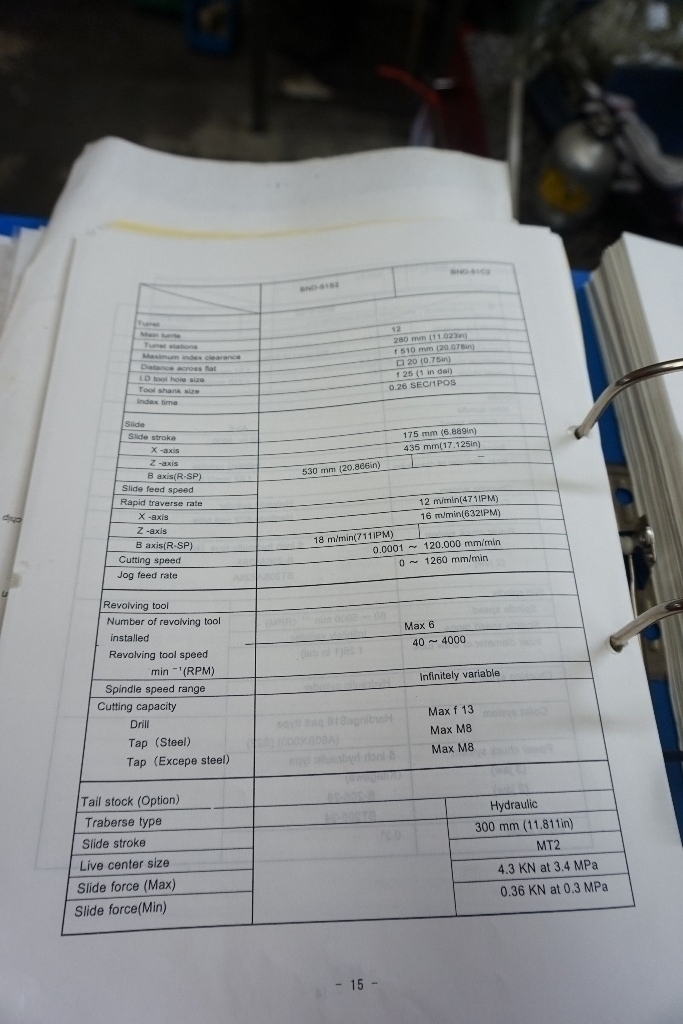 BND-51S2 BND-51C2
Turret
Main turrte
Turret stations 12
Maximum index clearance 280 mm (11.023in)
Distance across flat f 510 mm (20.078in)
I.D tool hole size □ 20 (0.75in)
Tool shank size f 25 (1 in dai)
Index time 0.26 SEC/1POS
Slide
Slide stroke
X -axis 175 mm (6.889in)
Z -axis 435 mm(17.125in)
B axis(R-SP) 530 mm (20.866in) -
Slide feed speed
Rapid traverse rate
X -axis 12 m/min(471IPM)
Z -axis 16 m/min(632IPM)
B axis(R-SP) 18 m/min(711IPM)
Cutting speed 0.0001 ~ 120.000 mm/min
Jog feed rate 0 ~ 1260 mm/min
Revolving tool
Number of revolving tool
installed Max 6
Revolving tool speed 40 ~ 4000
min ⁻¹(RPM)
Spindle speed range Infinitely variable
Cutting capacity
Drill Max f 13
Tap (Steel) Max M8
Tap (Excepe steel) Max M8
Tail stock (Option)
Traberse type Hydraulic
Slide stroke 300 mm (11.811in)
Live center size MT2
Slide force (Max) 4.3 KN at 3.4 MPa
Slide force(Min) 0.36 KN at 0.3 MPa
- 15 -